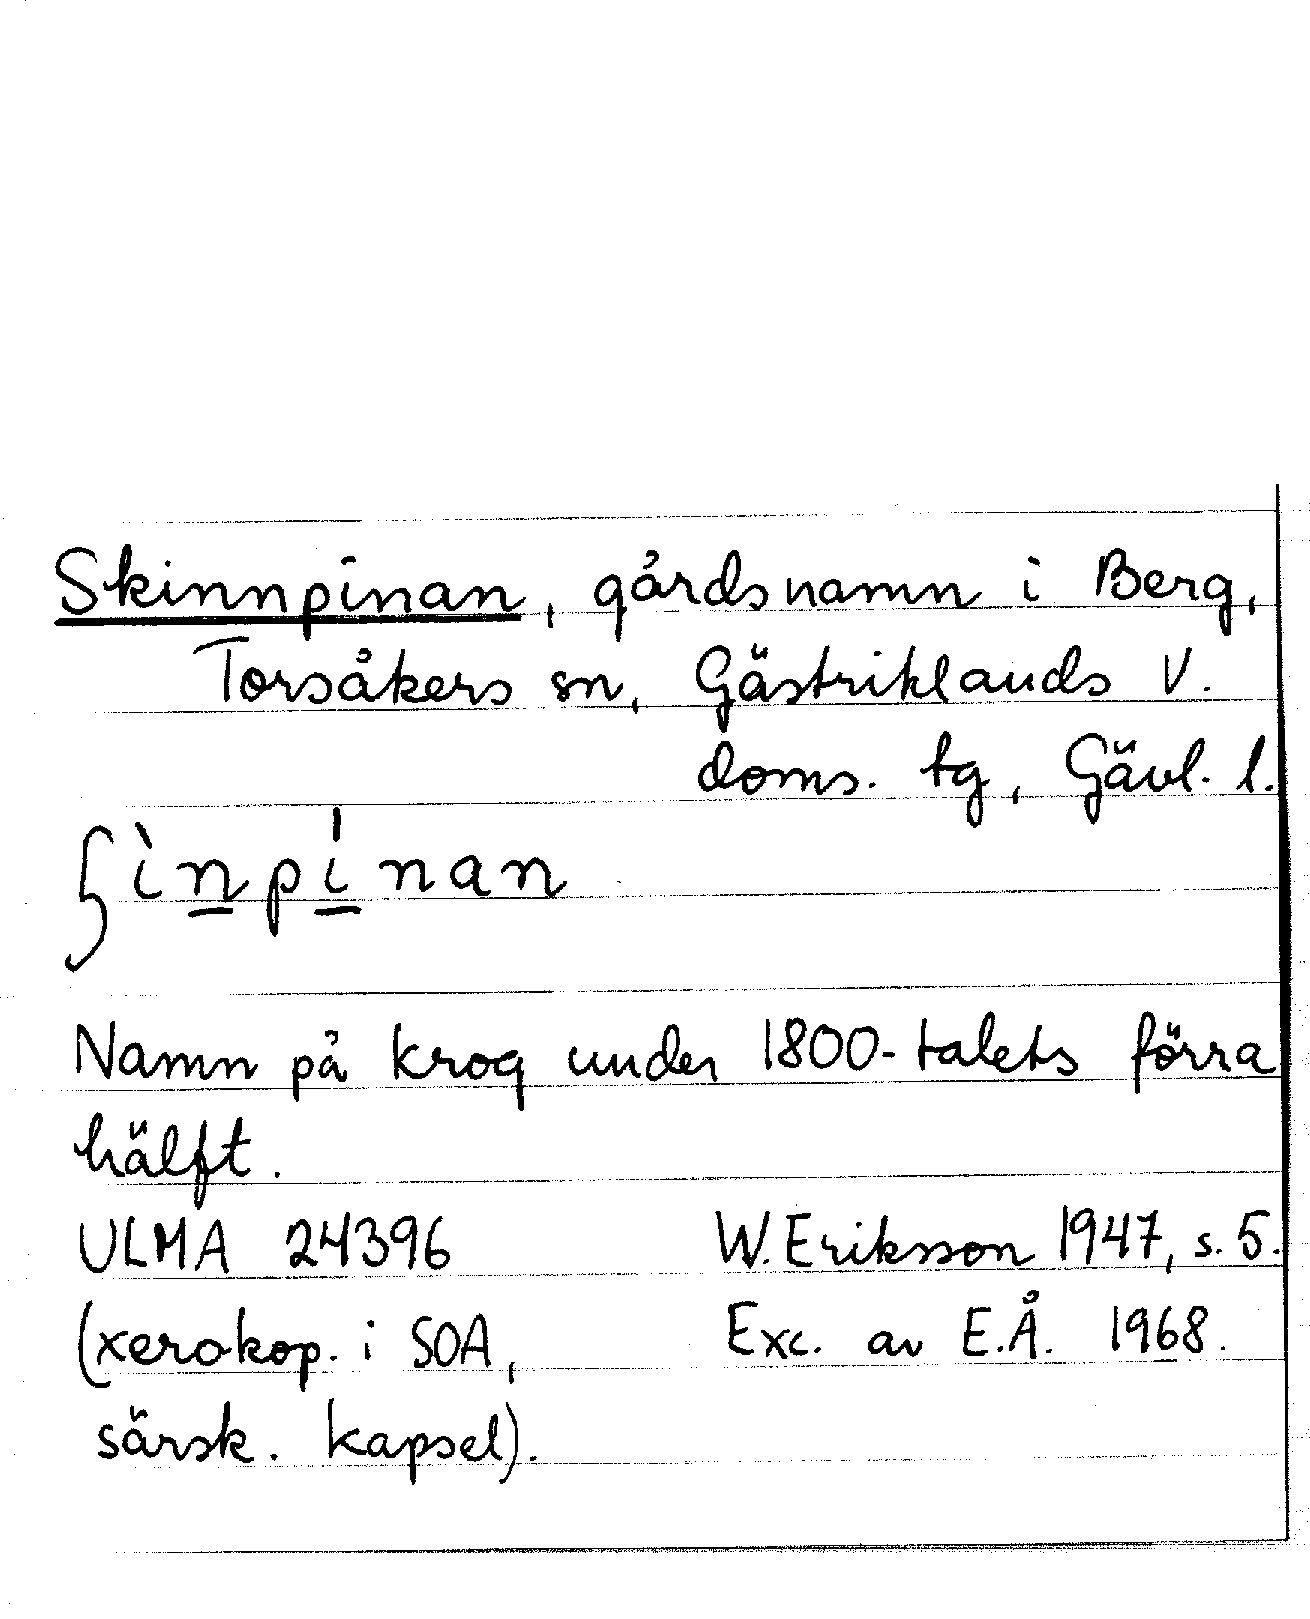 Skinnpinan, gårdsnamn i Berg,
Torsåkers sn, Gästriklands V.
doms. tg, Gävl. l.
ʃìn̲pí̲nan
Namn på krog under 1800-talets förra
hälft.
ULMA 24396 W. Eriksson 1947, s. 5.
(xerokop. i SOA, Exc. av E.Å. 1968.
särsk. kapsel).